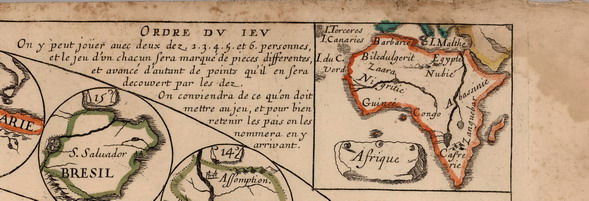 ORDRE DV IEV
On y peut joüer avec deux dez, 2.3.4.5. et 6. personnes,
et le jeu d'vn chacun sera marque de pieces differentes,
et avancé d'autant de points qu'il en sera
decouvert par les dez.
On conviendra de ce qu'on doit
mettre au jeu, et pour bien
retenir les païs on les
nommera en y
arrivant.
I. Terceres
I. Canaries
I. du C.
Verd
Barbarie
I. Malthe
Biledulgerit
Egypte
Zaara
Nubie
Nigritie
Abassinie
Guinée
Congo
Zanguebar
Cafre
rie
Afrique
ARIE
15
S. Salvador
BRESIL
14
Assomption.